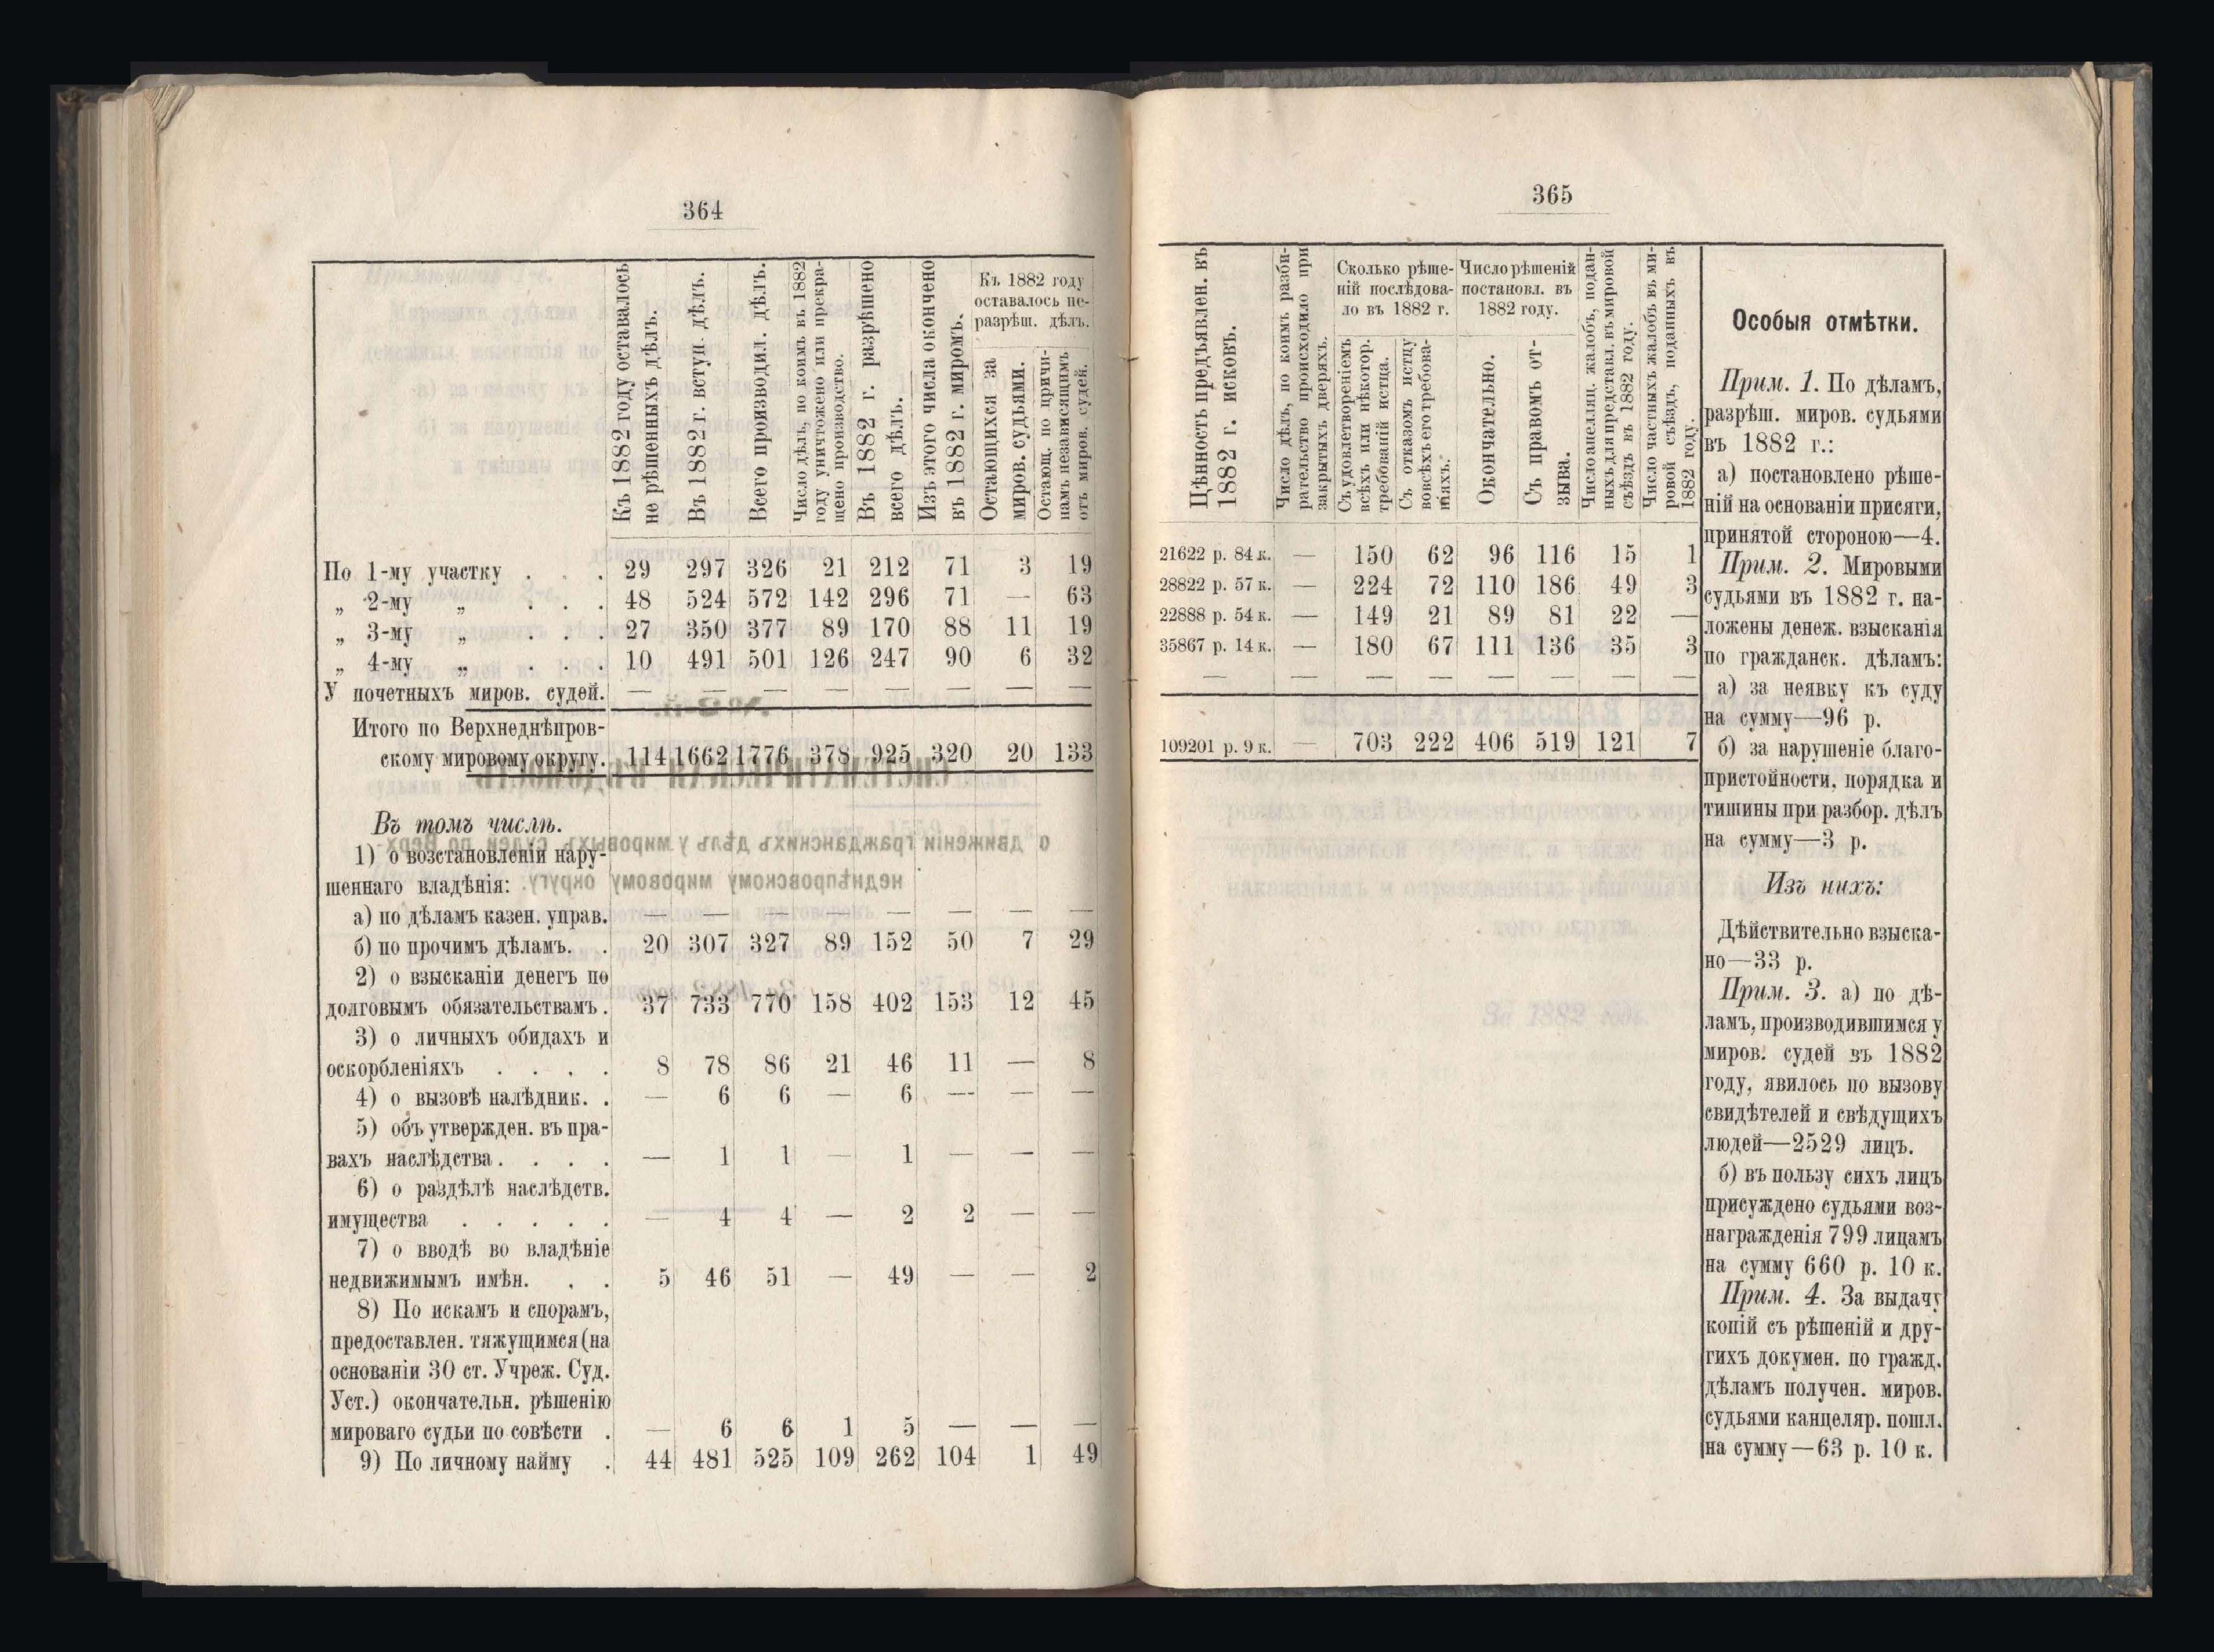 364
Къ 1882 году оставалось
не рѣшенныхъ дѣлъ.
Въ 1882 г. вступ. дѣлъ.
Всего производил. дѣлъ.
Число дѣлъ, по коимъ въ 1882
году уничтожено или прекра-
щено производство.
Въ 1882 г. разрѣшено
всего дѣлъ.
Изъ этого числа окончено
въ 1882 г. миромъ.
Къ 1882 году
оставалось не-
разрѣш. дѣлъ.
Остающихся за
миров. судьями.
Остающ. по причи-
намъ независящимъ
отъ миров. судей.
По 1-му участку . . . 29 297 326 21 212 71 3 19
„ 2-му „ . . . 48 524 572 142 296 71 — 63
„ 3-му „ . . . 27 350 377 89 170 88 11 19
„ 4-му „ . . . 10 491 501 126 247 90 6 32
У почетныхъ миров. судей. — — — — — — — —
Итого по Верхнеднѣпров-
скому мировому округу. 114 1662 1776 378 925 320 20 133
Въ томъ числѣ.
1) о возстановленіи нару-
шеннаго владѣнія:
а) по дѣламъ казен. управ. — — — — — — — —
б) по прочимъ дѣламъ. . 20 307 327 89 152 50 7 29
2) о взысканіи денегъ по
долговымъ обязательствамъ . 37 733 770 158 402 153 12 45
3) о личныхъ обидахъ и
оскорбленіяхъ . . . . 8 78 86 21 46 11 — 8
4) о вызовѣ налѣдник. . — 6 6 — 6 — — —
5) объ утвержден. въ пра-
вахъ наслѣдства. . . . — 1 1 — 1 — — —
6) о раздѣлѣ наслѣдств.
имущества . . . . . — 4 4 — 2 2 — —
7) о вводѣ во владѣніе
недвижимымъ имѣн. . . 5 46 51 — 49 — — 2
8) По искамъ и спорамъ,
предоставлен. тяжущимся (на
основаніи 30 ст. Учреж. Суд.
Уст.) окончательн. рѣшенію
мироваго судьи по совѣсти . — 6 6 1 5 — — —
9) По личному найму . 44 481 525 109 262 104 1 49
365
Цѣнность предъявлен. въ
1882 г. исковъ.
Число дѣлъ, по коимъ разби-
рательство происходило при
закрытыхъ дверяхъ.
Сколько рѣше-
ній послѣдова-
ло въ 1882 г.
Съ удовлетвореніемъ
всѣхъ или нѣкотор.
требованій истца.
Съ отказомъ истцу
во всѣхъ его требова-
ніяхъ.
Число рѣшеній
постановл. въ
1882 году.
Окончательно.
Съ правомъ от-
зыва.
Число апелляц. жалобъ, подан-
ныхъ для представл. въ мировой
съѣздъ въ 1882 году.
Число частныхъ жалобъ въ ми-
ровой съѣздъ, поданныхъ въ
1882 году.
21622 р. 84 к. — 150 62 96 116 15 1
28822 р. 57 к. — 224 72 110 186 49 3
22888 р. 54 к. — 149 21 89 81 22 —
35867 р. 14 к. — 180 67 111 136 35 3
— — — — — — — —
109201 р. 9 к. — 703 222 406 519 121 7
Особыя отмѣтки.
Прим. 1. По дѣламъ,
разрѣш. миров. судьями
въ 1882 г.:
а) постановлено рѣше-
ній на основаніи присяги,
принятой стороною—4.
Прим. 2. Мировыми
судьями въ 1882 г. на-
ложены денеж. взысканія
по гражданск. дѣламъ:
а) за неявку къ суду
на сумму—96 р.
б) за нарушеніе благо-
пристойности, порядка и
тишины при разбор. дѣлъ
на сумму—3 р.
Изъ нихъ:
Дѣйствительно взыска-
но—33 р.
Прим. 3. а) по дѣ-
ламъ, производившимся у
миров. судей въ 1882
году, явилось по вызову
свидѣтелей и свѣдущихъ
людей—2529 лицъ.
б) въ пользу сихъ лицъ
присуждено судьями воз-
награжденія 799 лицамъ
на сумму 660 р. 10 к.
Прим. 4. За выдачу
копій съ рѣшеній и дру-
гихъ докумен. по гражд.
дѣламъ получен. миров.
судьями канцеляр. пошл.
на сумму—63 р. 10 к.